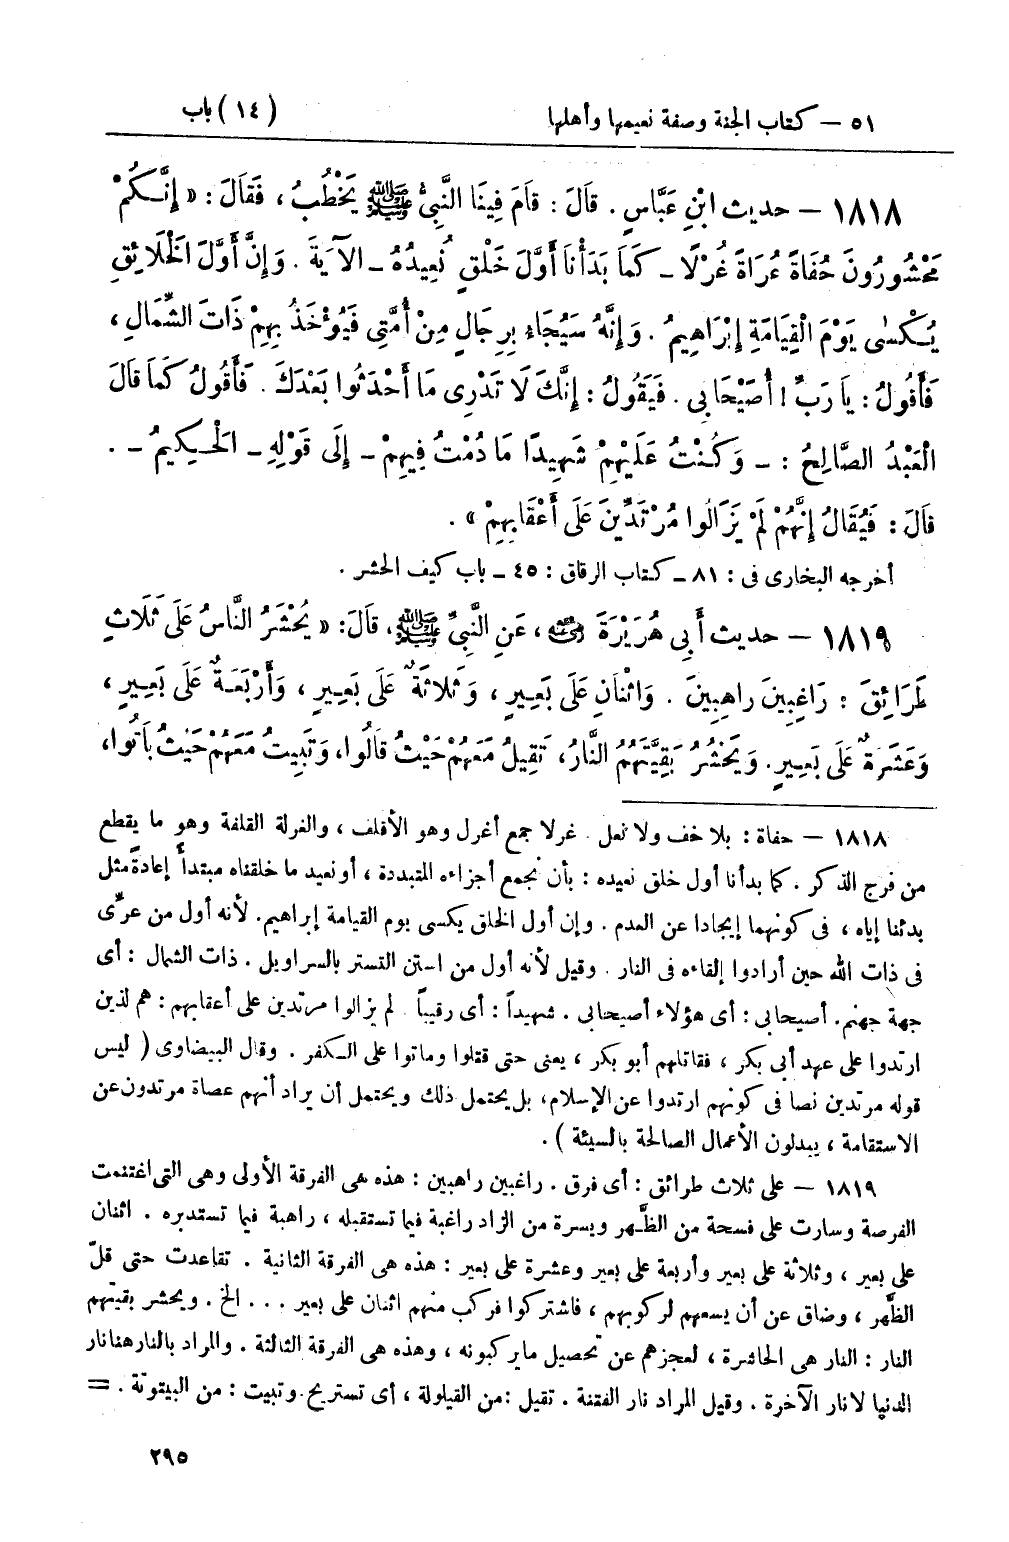 ٥١ – كتاب الجنة وصفة نعيمها وأهلها (١٤) باب
١٨١٨ – حديث ابْنِ عَبَّاسٍ . قَالَ : قَامَ فِينَا النَّبِيُّ ﷺ يَخْطُبُ ، فَقَالَ : « إِنَّكُمْ
مَحْشُورُونَ حُفَاةً عُرَاةً غُرْلًا ــ كَمَا بَدَأْنَا أَوَّلَ خَلْقٍ نُعِيدُهُ ــ الْآيَةَ . وَإِنَّ أَوَّلَ الْخَلَائِقِ
يُكْسَى يَوْمَ الْقِيَامَةِ إِبْرَاهِيمُ . وَإِنَّهُ سَيُجَاءُ بِرِجَالٍ مِنْ أُمَّتِي فَيُؤْخَذُ بِهِمْ ذَاتَ الشِّمَالِ ،
فَأَقُولُ : يَا رَبِّ ! أُصَيْحَابِي . فَيَقُولُ : إِنَّكَ لَا تَدْرِى مَا أَحْدَثُوا بَعْدَكَ . فَأَقُولُ كَمَا قَالَ
الْعَبْدُ الصَّالِحُ : ــ وَكُنْتُ عَلَيْهِمْ شَهِيدًا مَا دُمْتُ فِيهِمْ ــ إِلَى قَوْلِهِ ــ الْحَكِيمُ ــ .
قَالَ : فَيُقَالُ إِنَّهُمْ لَمْ يَزَالُوا مُرْتَدِّينَ عَلَى أَعْقَابِهِمْ » .
أخرجه البخارى فى : ٨١ ــ كتاب الرقاق : ٤٥ ــ باب كيف الحشر .
١٨١٩ – حديث أَبِي هُرَيْرَةَ رضي الله عنه ، عَنِ النَّبِيِّ ﷺ ، قَالَ : « يُحْشَرُ النَّاسُ عَلَى ثَلَاثِ
طَرَائِقَ : رَاغِبِينَ رَاهِبِينَ . وَاثْنَانِ عَلَى بَعِيرٍ ، وَثَلَاثَةٌ عَلَى بَعِيرٍ ، وَأَرْبَعَةٌ عَلَى بَعِيرٍ ،
وَعَشَرَةٌ عَلَى بَعِيرٍ . وَيَحْشُرُ بَقِيَّتَهُمُ النَّارُ ، تَقِيلُ مَعَهُمْ حَيْثُ قَالُوا ، وَتَبِيتُ مَعَهُمْ حَيْثُ بَاتُوا ،
١٨١٨ – حفاة : بلا خف ولا نعل . غرلا جمع أغرل وهو الأقلف ، والغرلة القلفة وهو ما يقطع
من فرج الذكر . كما بدأنا أول خلق نعيده : بأن نجمع أجزاءه المتبددة ، أو نعيد ما خلقناه مبتدأ إعادةً مثل
بدئنا إياه ، فى كونهما إيجادا عن العدم . وإن أول الخلق يكسى يوم القيامة إبراهيم . لأنه أول من عرِّى
فى ذات الله حين أرادوا إلقاءه فى النار . وقيل لأنه أول من استن التستر بالسراويل . ذات الشمال : أى
جهة جهنم . أصيحابى : أى هؤلاء أصيحابى . شهيداً : أى رقيباً . لم يزالوا مرتدين على أعقابهم : هم لذين
ارتدوا على عهد أبى بكر ، فقاتلهم أبو بكر ، يعنى حتى قتلوا وماتوا على الكفر . وقال البيضاوى ( ليس
قوله مرتدين نصا فى كونهم ارتدوا عن الإسلام ، بل يحتمل ذلك ويحتمل أن يراد أنهم عصاة مرتدون عن
الاستقامة ، يبدلون الأعمال الصالحة بالسيئة ) .
١٨١٩ – على ثلاث طرائق : أى فرق . راغبين راهبين : هذه هى الفرقة الأولى وهى التى اغتنمت
الفرصة وسارت على فسحة من الظَّهر ويسرة من الزاد راغبة فيما تستقبله ، راهبة فيما تستدبره . اثنان
على بعير ، وثلاثة على بعير وأربعة على بعير وعشرة على بعير : هذه هى الفرقة الثانية . تقاعدت حتى قلّ
الظَّهر ، وضاق عن أن يسعهم لركوبهم ، فاشتركوا فركب منهم اثنان على بعير ... الخ . ويحشر بقيتهم
النار : النار هى الحاشرة ، لعجزهم عن تحصيل ما يركبونه ، وهذه هى الفرقة الثالثة . والمراد بالنار هنا نار
الدنيا لا نار الآخرة . وقيل المراد نار الفتنة . تقيل : من القيلولة ، أى تستريح . وتبيت : من البيتوتة . =
٢٩٥